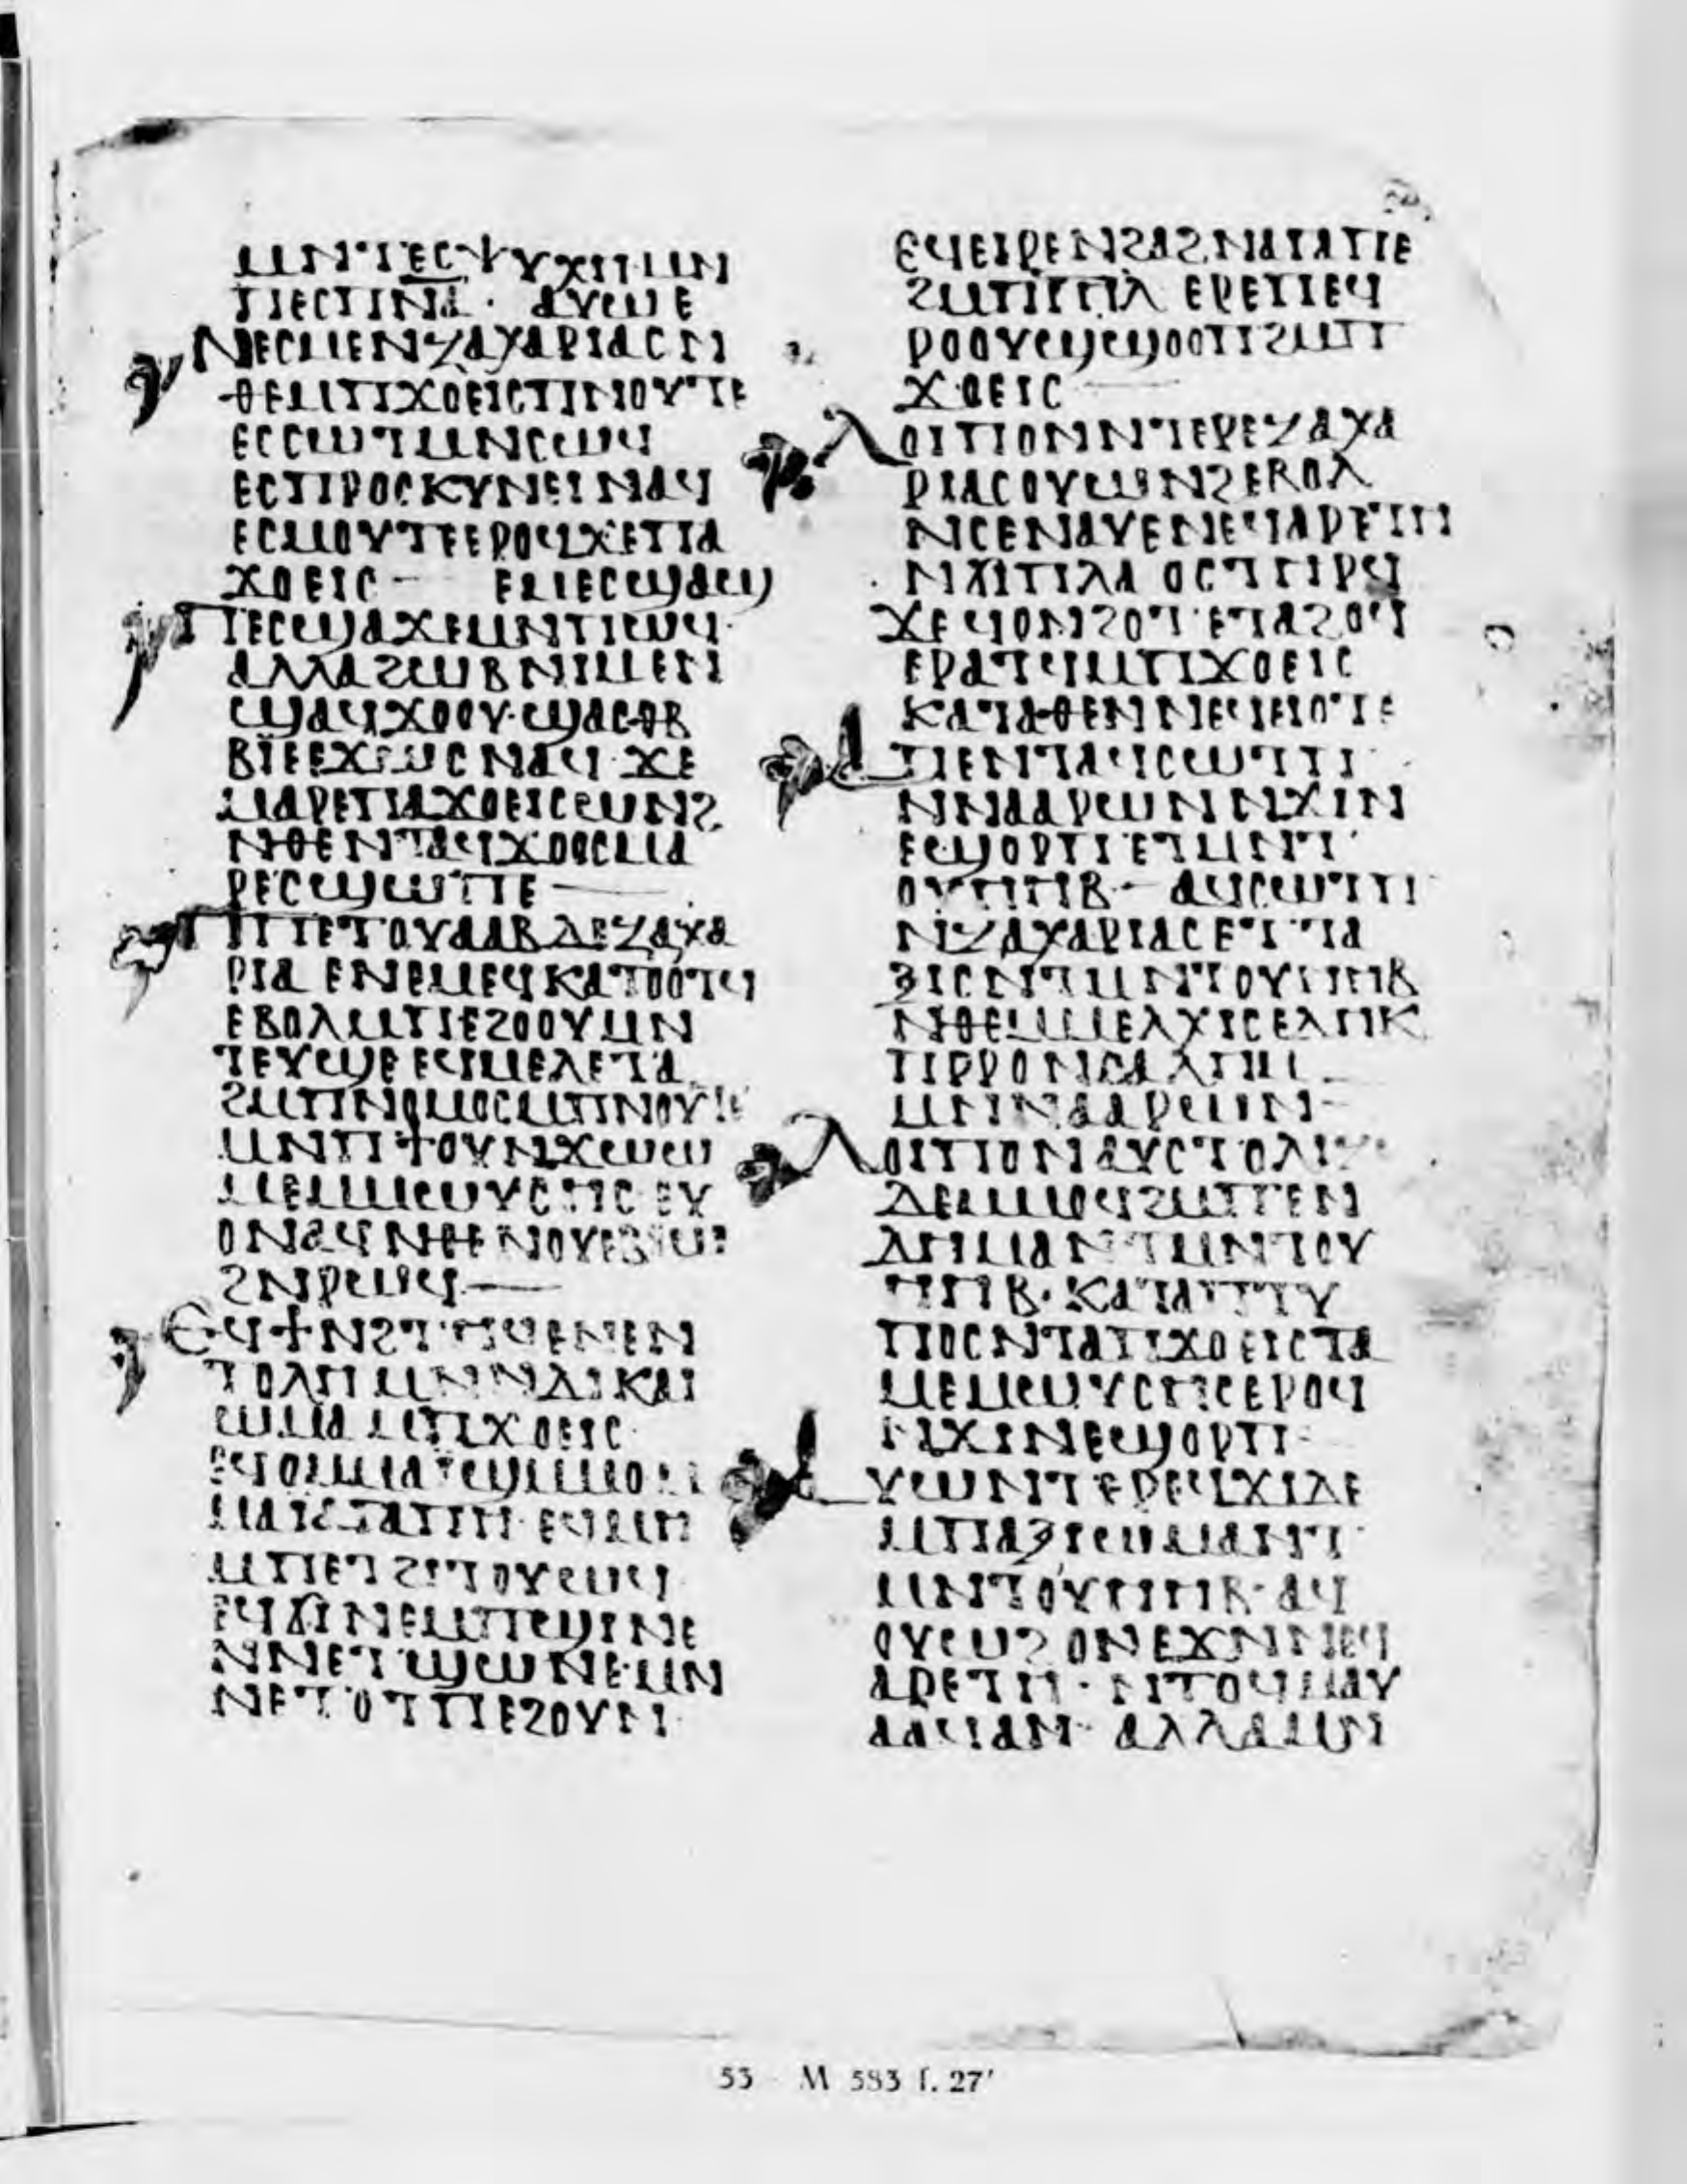 ⲙⲛⲧⲉⲥⲯⲩⲭⲏ ⲙⲛ
ⲡⲉⲥⲡⲛⲁ· ⲁⲩⲱ ⲉ
ⲛⲉⲥⲙⲉⲛⲍⲁⲭⲁⲣⲓⲁⲥ ⲛ
ⲑⲉ ⲙⲡϫⲟⲉⲓⲥ ⲡⲛⲟⲩⲧⲉ
ⲉⲥⲥⲱⲧⲙ ⲛⲥⲱϥ
ⲉⲥⲡⲣⲟⲥⲕⲩⲛⲉⲓ ⲛⲁϥ
ⲉⲥⲙⲟⲩⲧⲉ ⲉⲣⲟϥ ϫⲉ ⲡⲁ
ϫⲟⲉⲓⲥ— ⲉⲙⲉⲥϣⲁϣ
ⲧⲉⲥϣⲁϫⲉ ⲙⲛⲧⲱϥ·
ⲁⲗⲗⲁ ϩⲱⲃ ⲛⲓⲙ ⲉⲛ
ϣⲁϥϫⲟⲟⲩ· ϣⲁⲥⲑⲃ
ⲃⲓⲉ ⲉϫⲱⲥ ⲛⲁϥ· ϫⲉ
ⲙⲁⲣⲉ ⲡⲁϫⲟⲉⲓⲥ ⲱⲛϩ
ⲛⲑⲉ ⲛⲧⲁϥϫⲟⲟⲥ ⲙⲁ
ⲣⲉⲥϣⲱⲡⲉ—
ⲡⲡⲉⲧⲟⲩⲁⲁⲃ ⲇⲉ ⲍⲁⲭⲁ
ⲣⲓⲁ ⲉⲛⲉⲙⲉϥⲕⲁⲧⲟⲟⲧϥ
ⲉⲃⲟⲗ ⲙⲡⲉϩⲟⲟⲩ ⲙⲛ
ⲧⲉⲩϣⲉ ⲉϥⲙⲉⲗⲉⲧⲁ
ϩⲙⲡⲛⲟⲙⲟⲥ ⲙⲡⲛⲟⲩⲧⲉ
ⲙⲛⲡϯⲟⲩ ⲛϫⲱⲱ
ⲙⲉ ⲙⲙⲱⲩⲥⲏⲥ· ⲉⲩ
ⲟ ⲛⲁϥ ⲛⲑⲉ ⲛⲟⲩⲉⲃⲓⲱ
ϩⲛⲣⲱϥ—
ⲉϥϯⲛϩⲧⲏϥ ⲉⲛⲉⲛ
ⲧⲟⲗⲏ ⲙⲛ ⲛⲇⲓⲕⲁⲓ
ⲱⲙⲁ ⲙⲡϫⲟⲉⲓⲥ·
ⲉϥⲟ ⲙⲙⲁⲓϣⲙⲙⲟ
ⲙⲙⲁⲓⲁⲅⲁⲡⲏ· ⲉϥⲙⲉ
ⲙⲡⲉⲧϩⲓⲧⲟⲩⲱϥ
ⲉϥϭⲓⲛⲉ ⲙⲡϣⲓⲛⲉ
ⲛⲛⲉⲧϣⲱⲛⲉ· ⲙⲛ
ⲛⲉⲧⲟⲧⲡ ⲉϩⲟⲩⲛ·
ⲉϥⲉⲓⲣⲉ ⲛϩⲁϩ ⲛⲁⲅⲁⲡⲏ
ϩⲙⲡⲓⲏⲗ ⲉⲣⲉⲡⲉϥ
ⲣⲟⲟⲩϣ ϣⲟⲟⲡ ϩⲙⲡ
ϫⲟⲉⲓⲥ—
ⲗⲟⲓⲡⲟⲛ ⲛⲧⲉⲣⲉⲍⲁⲭⲁ
ⲣⲓⲁⲥ ⲟⲩⲱⲛϩ ⲉⲃⲟⲗ
ⲛⲥⲉⲛⲁⲩ ⲉⲛⲉϥⲁⲣⲉⲧⲏ
ⲛϭⲓⲡⲗⲁⲟⲥ ⲧⲏⲣϥ
ϫⲉ ϥⲟ ⲛϩⲟⲧⲉ ⲉⲧⲁϩⲟϥ
ⲉⲣⲁⲧϥ ⲙⲡϫⲟⲉⲓⲥ
ⲕⲁⲧⲁ ⲑⲉ ⲛⲛⲉϥⲉⲓⲟⲧⲉ
ⲁⲡⲉⲛⲧⲁϥⲥⲱⲧⲡ
ⲛⲛⲁⲁⲣⲱⲛ ⲛϫⲓⲛ
ⲉϣⲟⲣⲡ ⲉⲧⲙⲛⲧ
ⲟⲩⲏⲏⲃ— ⲁϥⲥⲱⲧⲡ
ⲛⲍⲁⲭⲁⲣⲓⲁⲥ ⲉⲧⲧⲁ
ⲝⲓⲥ ⲛⲧⲙⲛⲧⲟⲩⲏⲏⲃ
ⲛⲑⲉ ⲙⲙⲉⲗⲭⲓⲥⲉⲇⲏⲕ
ⲡⲣⲣⲟ ⲛⲥⲁⲗⲏⲙ
ⲙⲛⲛⲁⲁⲣⲱⲛ—
ⲗⲟⲓⲡⲟⲛ ⲁⲩⲥⲧⲟⲗⲓⲍⲉ
ⲇⲉ ⲙⲙⲟϥ ϩⲙⲡⲉⲛ
ⲇⲩⲙⲁ ⲛⲧⲙⲛⲧⲟⲩ
ⲏⲏⲃ· ⲕⲁⲧⲁ ⲡⲧⲩ
ⲡⲟⲥ ⲛⲧⲁⲡϫⲟⲉⲓⲥ ⲧⲁ
ⲙⲉ ⲙⲱⲩⲥⲏⲥ ⲉⲣⲟϥ
ⲛϫⲓⲛ ⲉϣⲟⲣⲡ·
ⲁⲩⲱ ⲛⲧⲉⲣⲉϥϫⲓ ⲇⲉ
ⲙⲡⲁⲝⲓⲱⲙⲁ ⲛⲧ
ⲙⲛⲧⲟⲩⲏⲏⲃ· ⲁϥ
ⲟⲩⲱϩ ⲟⲛ ⲉϫⲛⲛⲉϥ
ⲁⲣⲉⲧⲏ· ⲛⲧⲟϥ ⲙⲁⲩ
ⲁⲁϥ ⲁⲛ· ⲁⲗⲗⲁ ⲙⲛ
53 M 583 f. 27ʳ